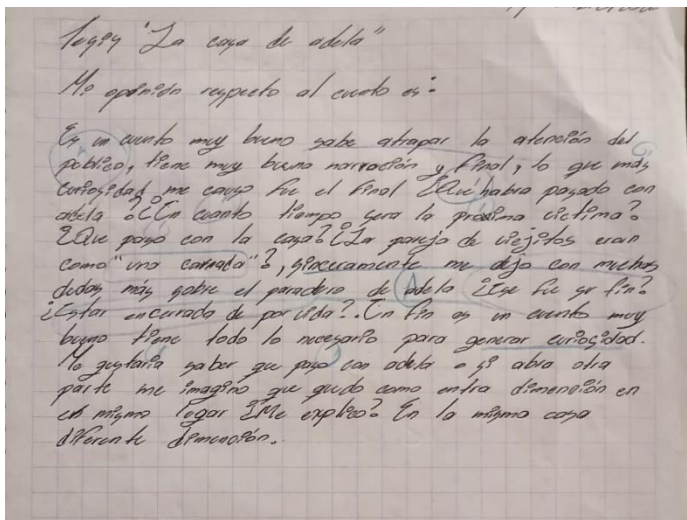 "La casa de adela"
Mi opinión respecto al cuento es:
Es un cuento muy bueno sabe atrapar la atención del
público, tiene muy buena narración y final, lo que más
curiosidad me causo fue el final ¿Que habra pasado con
adela? ¿En cuanto tiempo sera la proxima victima?
¿Que paso con la casa? ¿La pareja de viejitos eran
como "una carnada"?, sinceramente me dejo con muchas
dudas más sobre el paradero de adela ¿Ese fue su fin?
¿Estar encerrada de por vida?. En fin es un cuento muy
bueno tiene todo lo necesario para generar curiosidad.
Me gustaria saber que paso con adela o si abra otra
parte me imagino que quedo como entra dimención en
en mismo lugar ¿Me explico? En la misma casa
diferente dimención.